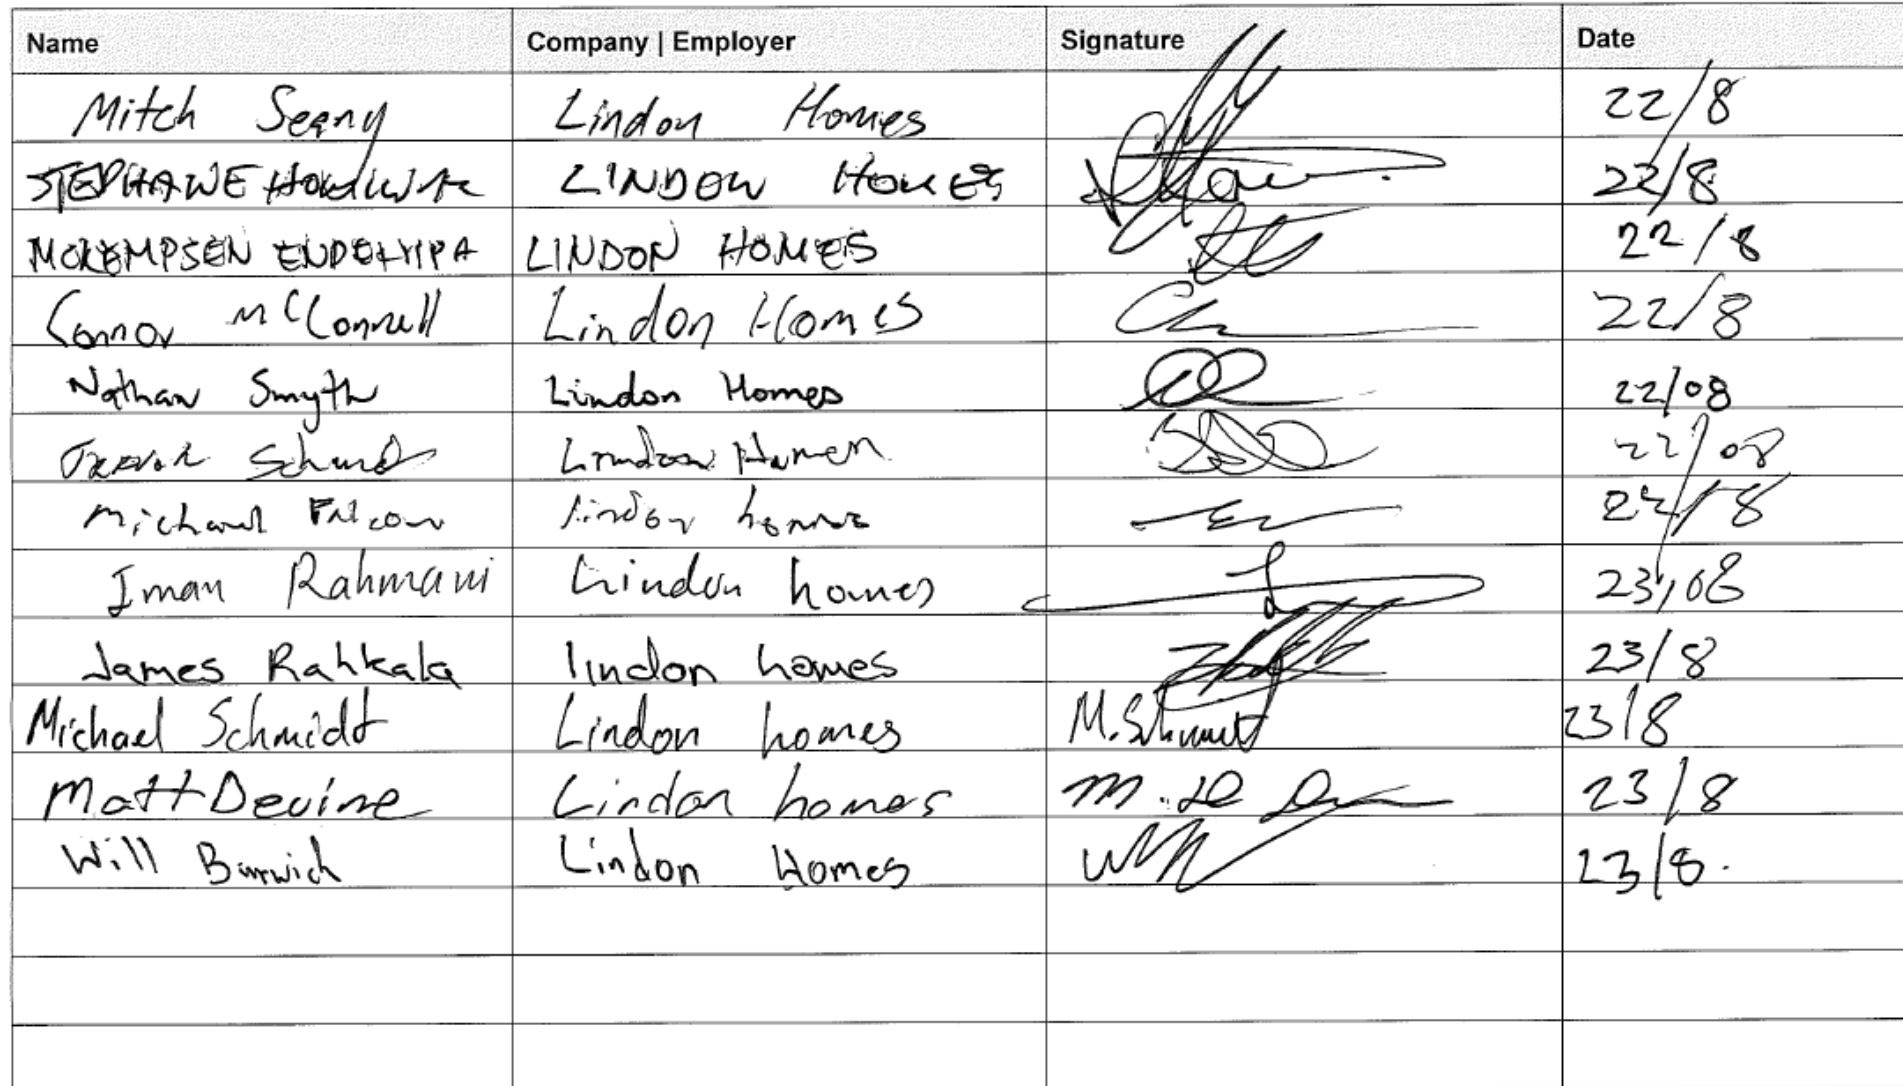 Name Company | Employer Signature Date
Mitch Lindon Homes 22/8
LINDON HOMES 22/8
LINDON HOMES 22/8
Connor McConnell Lindon Homes 22/8
Nathan Smyth Lindon Homes 22/08
Lindon Homes 22/08
Michael Falcon lindon homes 22/8
Iman Rahmani Lindon homes 23/08
James Rahkala lindon homes 23/8
Michael Schmidt Lindon homes M.Schmidt 23/8
Matt Devine Lindon homes 23/8
Will Barwich Lindon Homes 23/8.